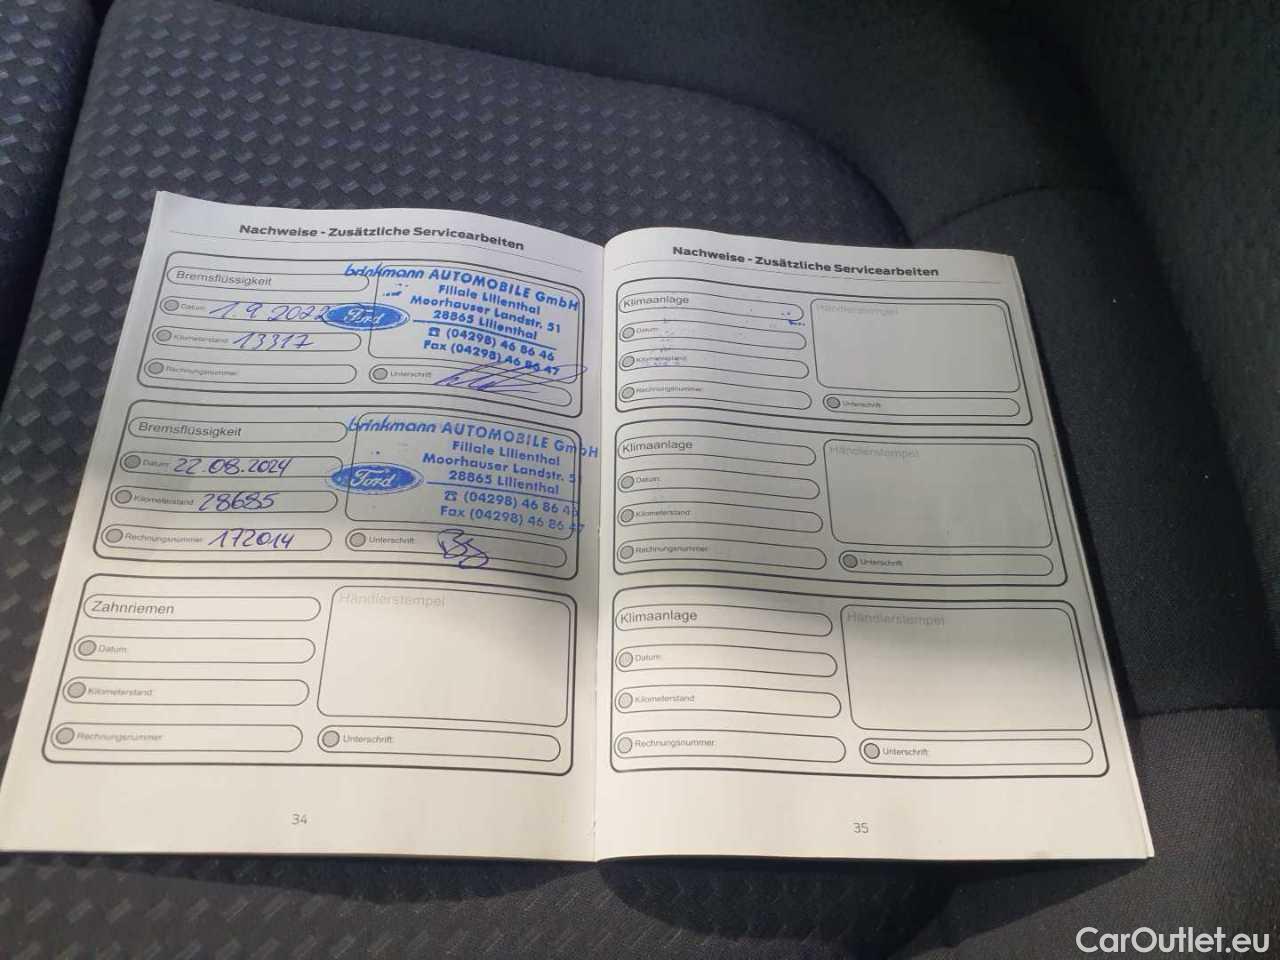 Nachweise - Zusätzliche Servicearbeiten
Bremsflüssigkeit
Datum: 1.9.2022
Kilometerstand: 13317
Rechnungsnummer:
brinkmann AUTOMOBILE GmbH
Filiale Lilienthal
Moorhauser Landstr. 51
28865 Lilienthal
☎ (04298) 46 86 46
Fax (04298) 46 86 47
Ford
Unterschrift:
Bremsflüssigkeit
Datum: 22.08.2024
Kilometerstand: 28685
Rechnungsnummer: 172014
brinkmann AUTOMOBILE GmbH
Filiale Lilienthal
Moorhauser Landstr. 5
28865 Lilienthal
☎ (04298) 46 86 46
Fax (04298) 46 86 47
Ford
Unterschrift:
Zahnriemen
Datum:
Kilometerstand:
Rechnungsnummer:
Händlerstempel
Unterschrift:
34
Nachweise - Zusätzliche Servicearbeiten
Klimaanlage
Datum:
Kilometerstand:
Rechnungsnummer:
Händlerstempel
Unterschrift:
Klimaanlage
Datum:
Kilometerstand:
Rechnungsnummer:
Händlerstempel
Unterschrift:
Klimaanlage
Datum:
Kilometerstand:
Rechnungsnummer:
Händlerstempel
Unterschrift:
35
CarOutlet.eu